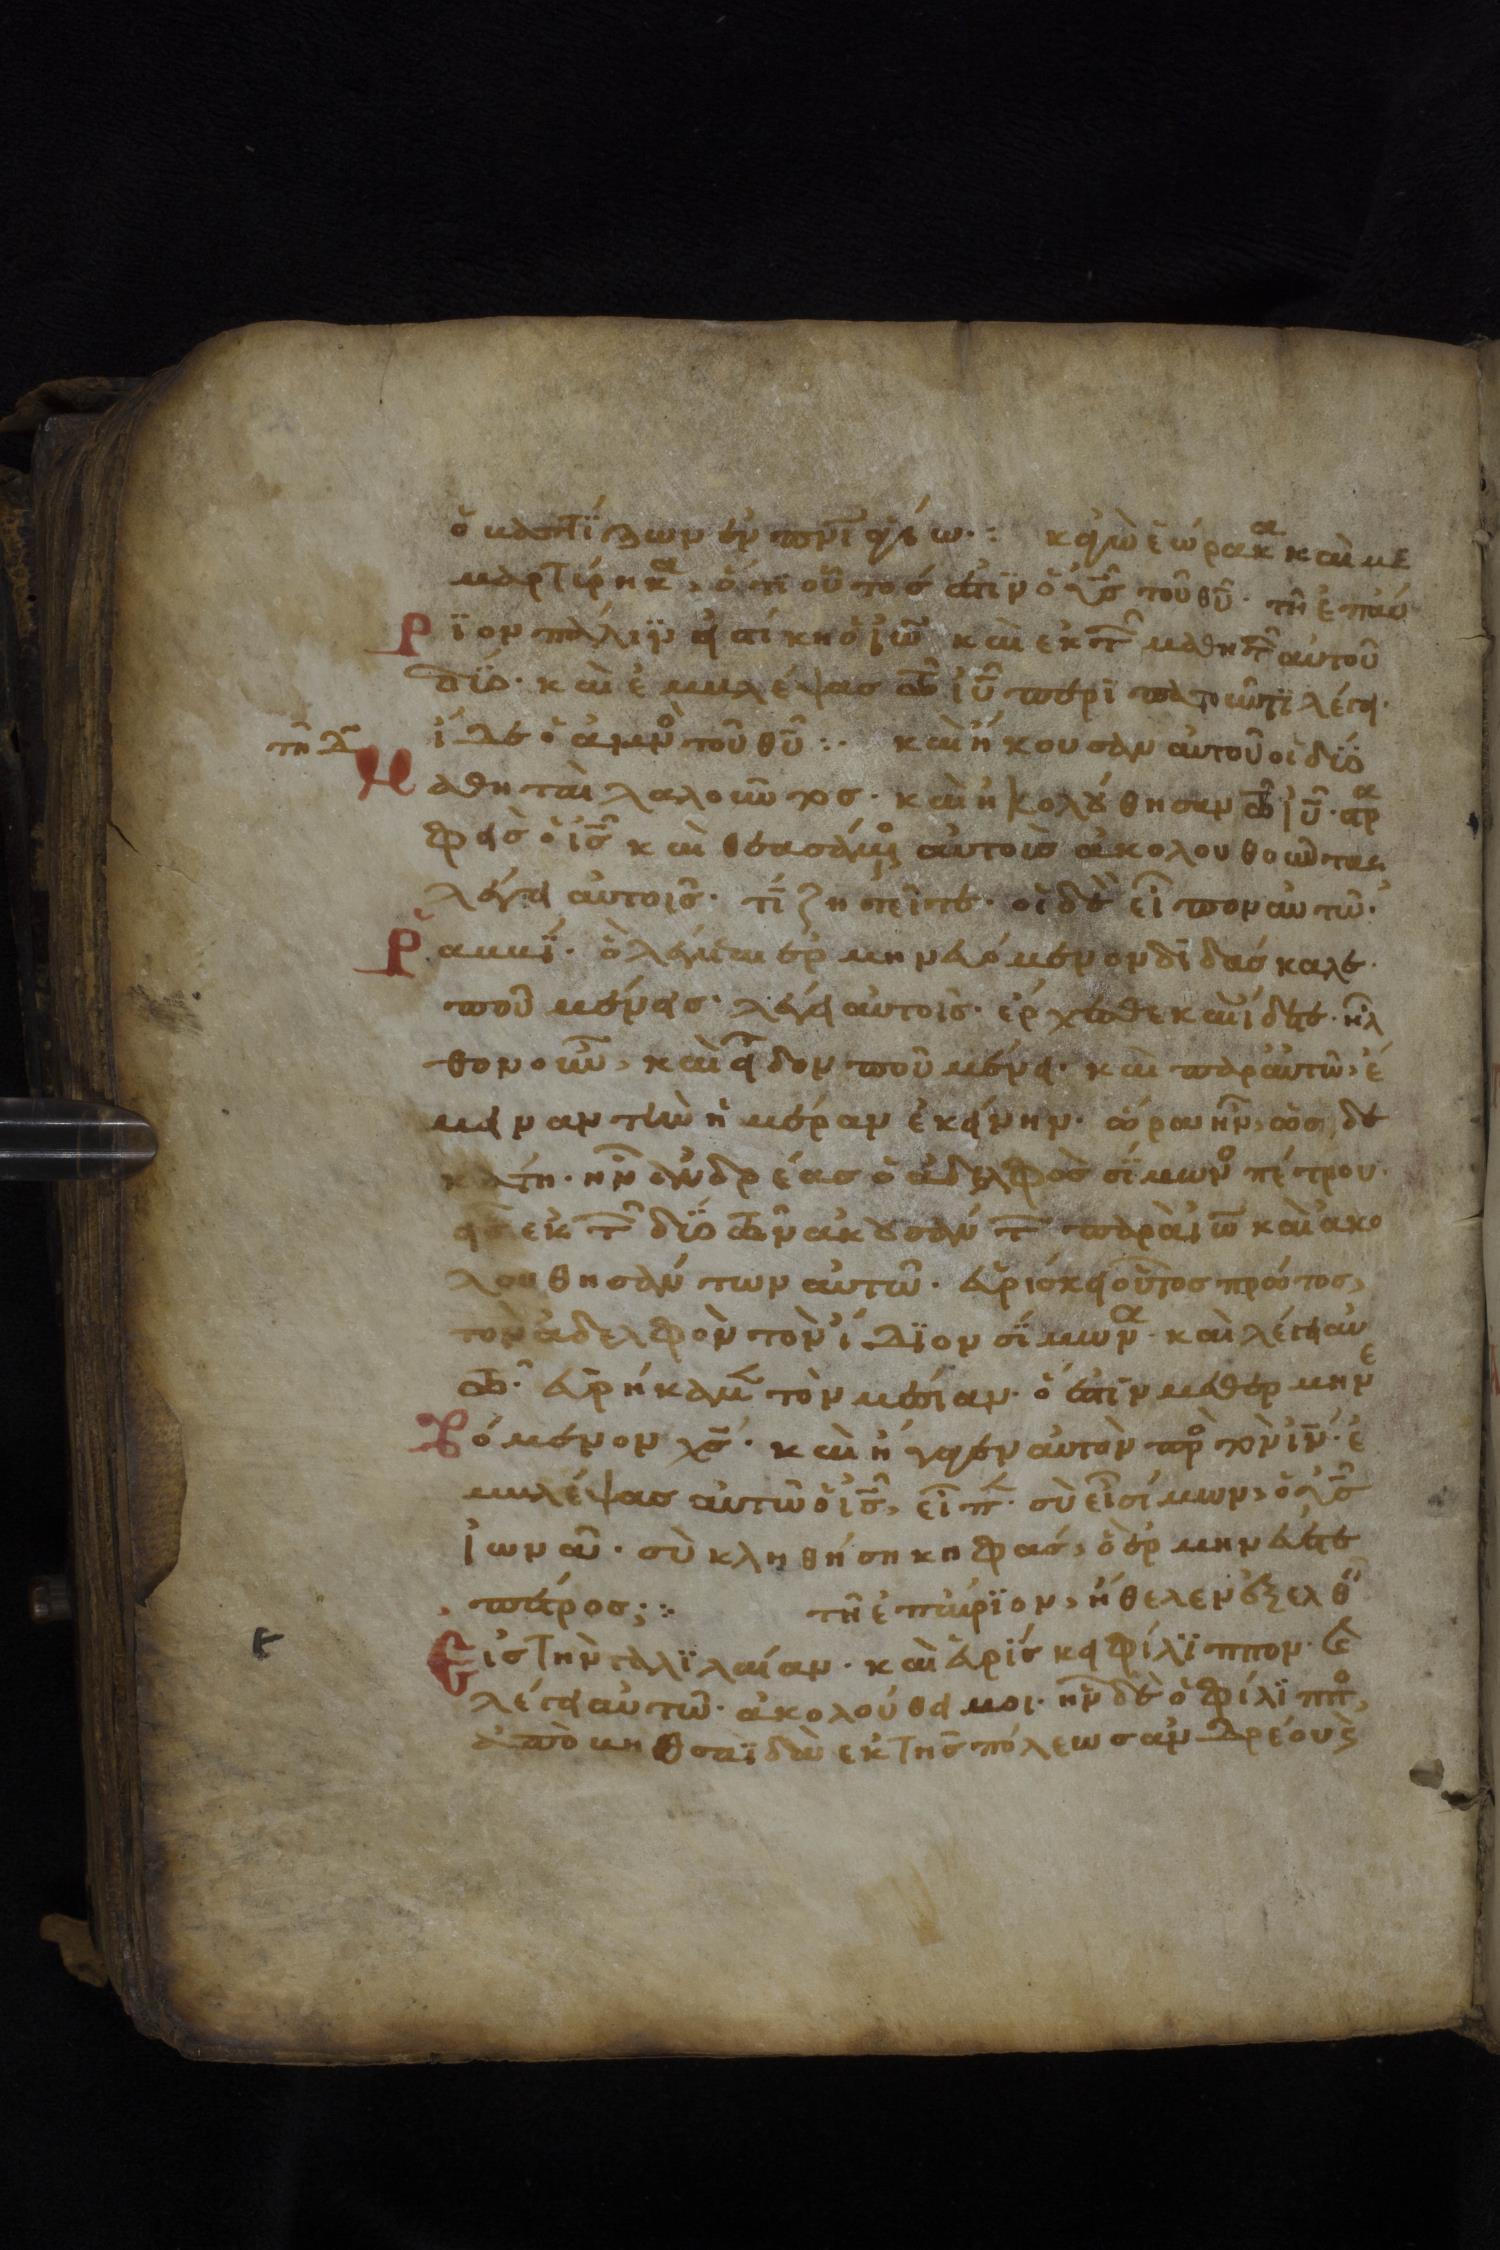 ὁ βαπτίζων ἐν πνι ἁγίω· : κἀγὼ ἑώρακα καὶ με
μαρτύρηκα, ὅτι οὗτός ἐστιν ὁ υς τοῦ θυ· τῆ ἐπαύ
ριον πάλιν εἱστήκει ὁ ιω καὶ ἐκ τῶν μαθητῶν αὐτοῦ
δύο· καὶ ἐμβλέψας τῶ ιυ περιπατοῦντι λέγει·
τῆ δ
ἴδε ὁ ἀμνὸς τοῦ θυ : · καὶ ἤκουσαν αὐτοῦ οἱ δύο
μαθηταὶ λαλοῦντος· καὶ ἠκολούθησαν τῶ ιυ· στρα
φεὶς ὁ ις καὶ θεασάμενος αὐτοὺς ἀκολουθοῦντας
λέγει αὐτοῖς· τί ζητεῖτε· οἱ δὲ εἶπον αὐτῶ·
Ραββί· ὃ λέγεται ἑρμηνευόμενον διδάσκαλε·
ποῦ μένεις· λέγει αὐτοῖς· ἔρχεσθε καὶ ἴδετε· ἦλ
θον οὖν, καὶ εἶδον ποῦ μένει· καὶ παρ αὐτῶ, ἔ
μειναν τὴν ἡμέραν ἐκείνην· ὥρα ἦν, ὡς δε
κάτη· ἦν ἀνδρέας ὁ ἀδελφὸς σίμωνος πέτρου·
εἷς ἐκ τῶν δύο τῶν ἀκουσάντων παρὰ ιω καὶ ἀκο
λουθησάντων αὐτῶ· εὑρίσκει οὗτος πρῶτος,
τὸν ἀδελφὸν τὸν ἴδιον σίμωνα· καὶ λέγει αὐ
τῶ· εὑρήκαμεν τὸν μεσίαν· ὅ ἐστιν μεθερμηνε
υόμενον χς· καὶ ἤγαγεν αὐτὸν πρὸς τὸν ιν· ἐ
μβλέψας αὐτῶ ὁ ις, εἶπεν· σὺ εἶ σίμων, ὁ υς
ἰωνᾶ· σὺ κληθήση κηφᾶς, ὃ ἑρμηνεύεται
πέτρος; : τῆ ἐπαύριον, ἤθελεν ἐξελθεῖν
εἰς τὴν γαλιλαίαν· καὶ εὑρίσκει φίλιππον· καὶ
λέγει αὐτῶ· ἀκολούθει μοι· ἦν δὲ ὁ φίλιππος,
ἀπὸ βηθσαϊδὰ ἐκ τῆς πόλεως ἀνδρέου καὶ